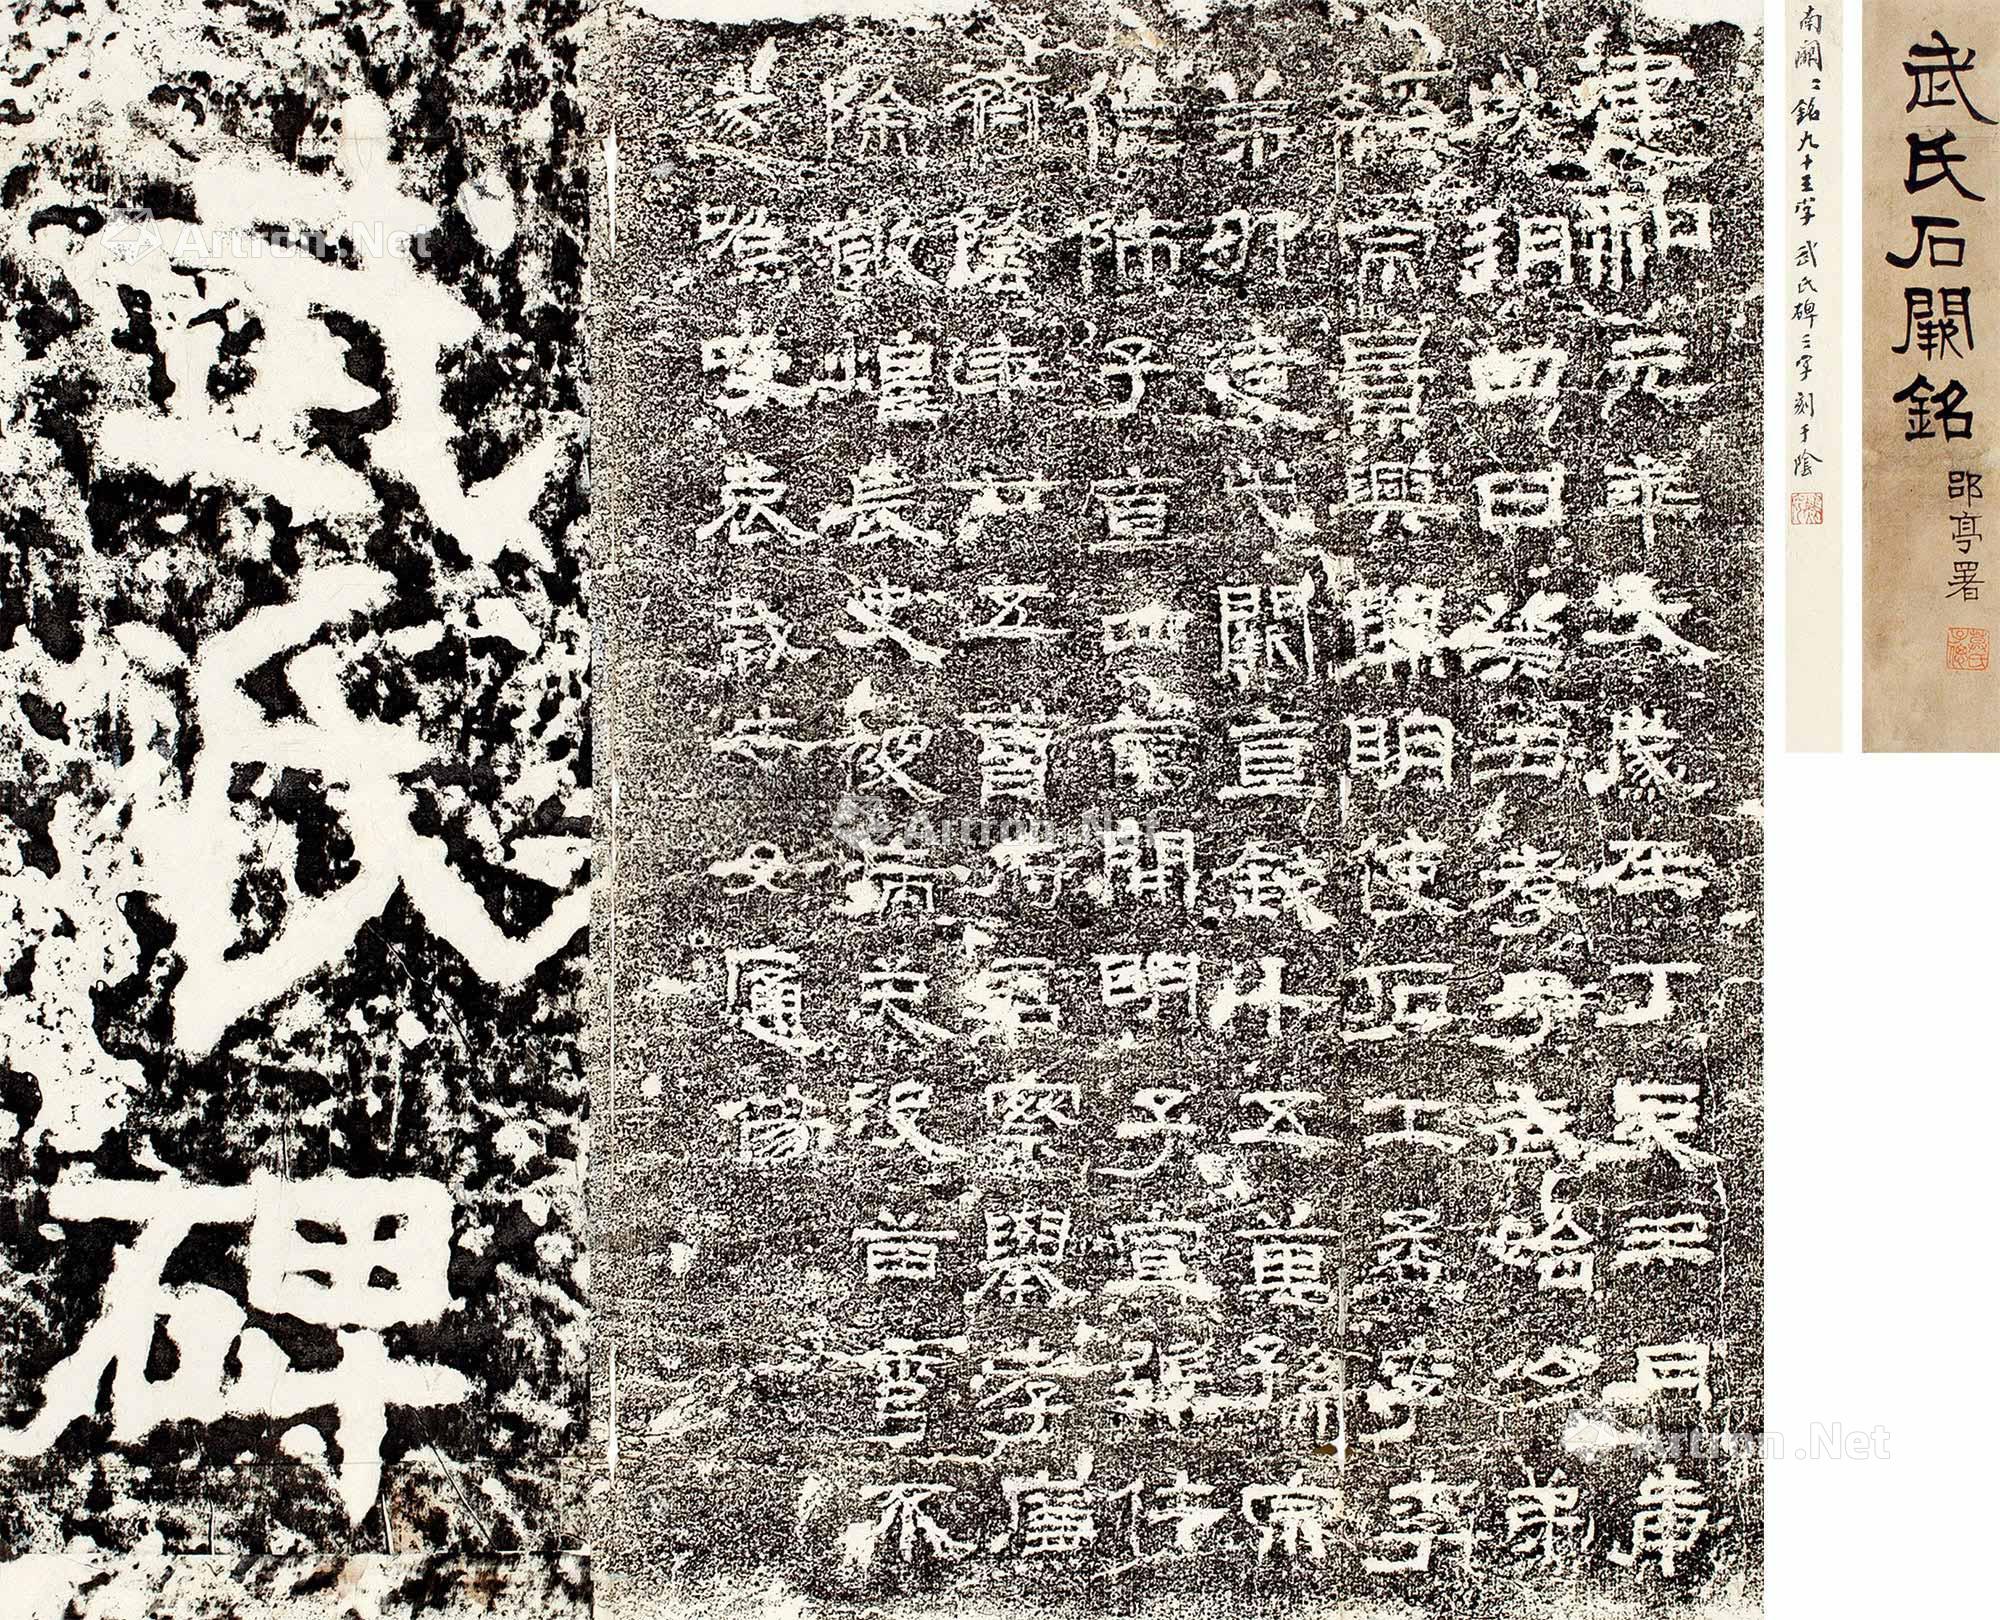 武氏石闕銘
郘亭署
莫氏子偲
南闕〻銘九十五字武氏碑三字刻于陰
建和元年大歲在丁亥三月庚
戌朔四日癸丑孝子武始公弟
綏宗景興開明使石工孟孚李
弟卯造此闕直錢十五萬孫宗
作師子直四萬開明子宣張仕
濟陰年廿五曹府君察舉孝廉
除敦煌長史被病夭歿苗秀不
遂嗚呼哀哉士女痛傷
武氏碑
Artron.Net
Artron.Net
Artron.Net